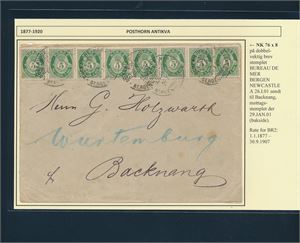 1877-1920
POSTHORN ANTIKVA
-- NK 76 x 8
på dobbel-
vektig brev
stemplet
BUREAU DE
MER
BERGEN
NEWCASTLE
A 26.I.01 sendt
til Backnang,
mottags-
stempler der
29.JAN.01
(bakside).
Rate for BR2:
1.1.1877 -
30.9.1907
Herrn G. Holzwarth
Wurtemburg
Backnang